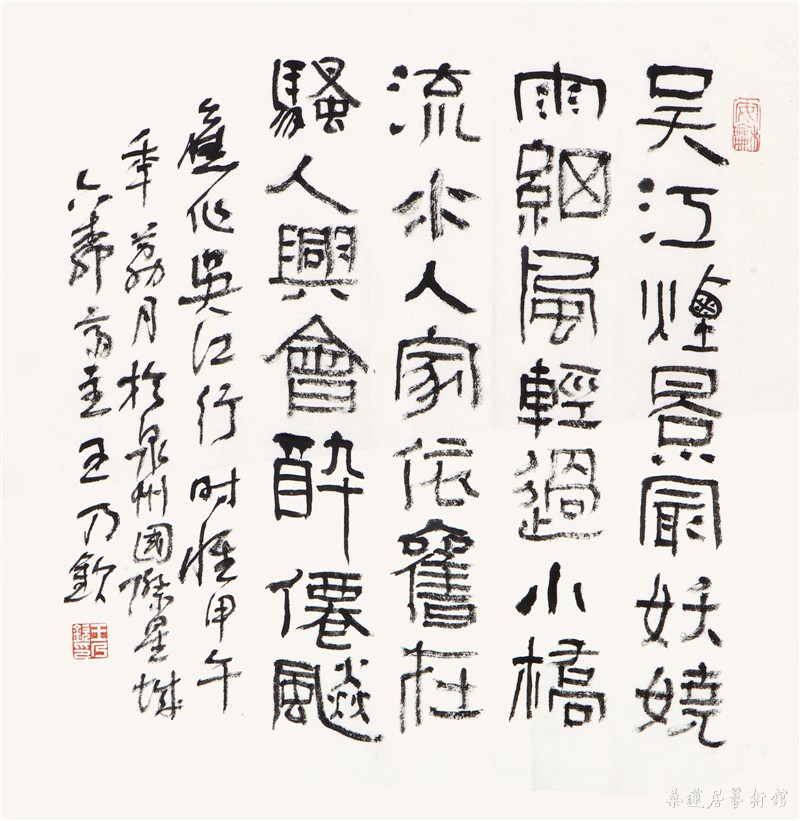 吴江煙景冣妖嬈
雨細風輕過小橋
流水人家依舊在
騷人興會醉僊飈
應作吳江行 时惟甲午
年荔月於泉州國際星城
六壽齋主王乃欽
桑蓮居藝術館